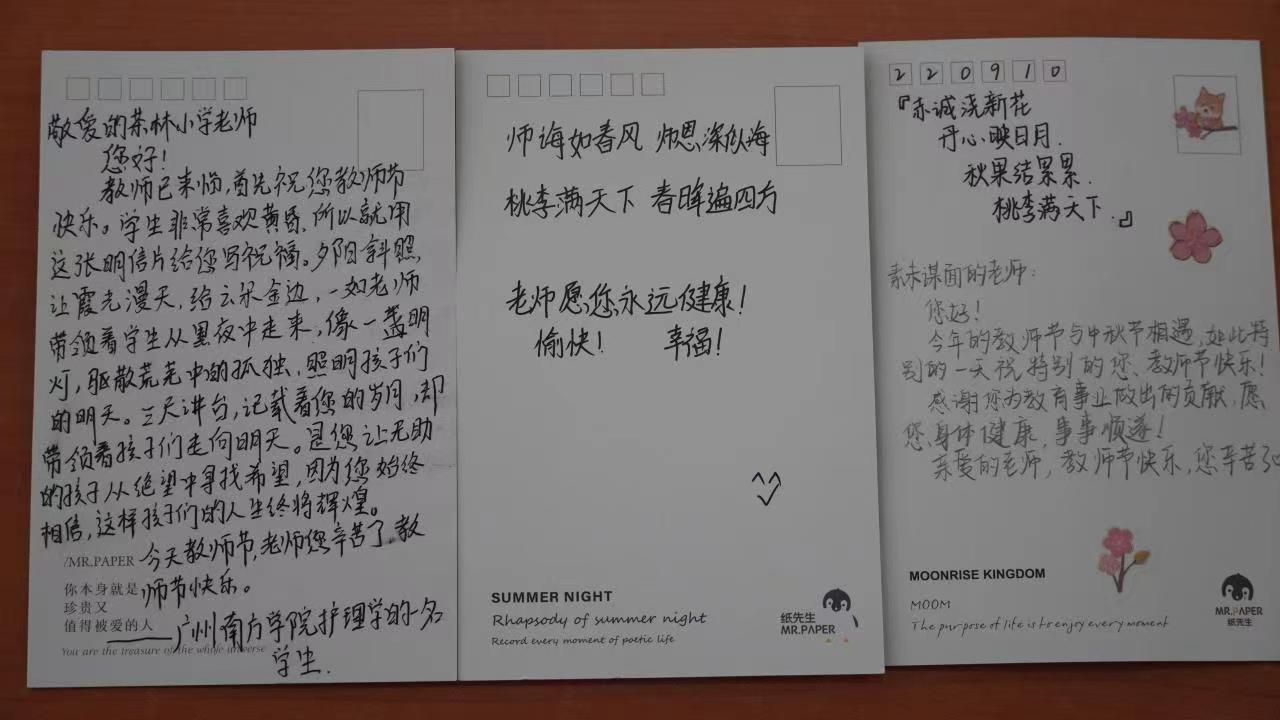 敬爱的茶林小学老师
您好！
教师已来临，首先祝您教师节
快乐。学生非常喜欢黄昏，所以就用
这张明信片给您写祝福。夕阳斜照，
让霞光漫天，给云朵金边，一如老师
带领着学生从黑夜中走来，像一盏明
灯，驱散荒芜中的孤独，照明孩子们
的明天。三尺讲台，记载着您的岁月，却
带领着孩子们走向明天。是您让无助
的孩子从绝望中寻找希望，因为您始终
相信，这样孩子们的人生终将辉煌。
今天教师节，老师您辛苦了，教
师节快乐。
——广州南方学院护理学的一名
学生.
/MR.PAPER
你本身就是
珍贵又
值得被爱的人
You are the treasure of the whole universe
师诲如春风 师恩深似海
桃李满天下 春晖遍四方
老师愿您永远健康！
愉快！ 幸福！
SUMMER NIGHT
Rhapsody of summer night
Record every moment of poetic life
纸先生
MR.PAPER
220910
『赤诚浇新花
丹心映日月.
秋果结累累.
桃李满天下.』
素未谋面的老师：
您好！
今年的教师节与中秋节相遇，如此特
别的一天祝特别的您、教师节快乐！
感谢您为教育事业做出的贡献，愿
您身体健康，事事顺遂！
亲爱的老师，教师节快乐，您辛苦了
MOONRISE KINGDOM
MOOM
The purpose of life is to enjoy every moment
MR.PAPER
纸先生